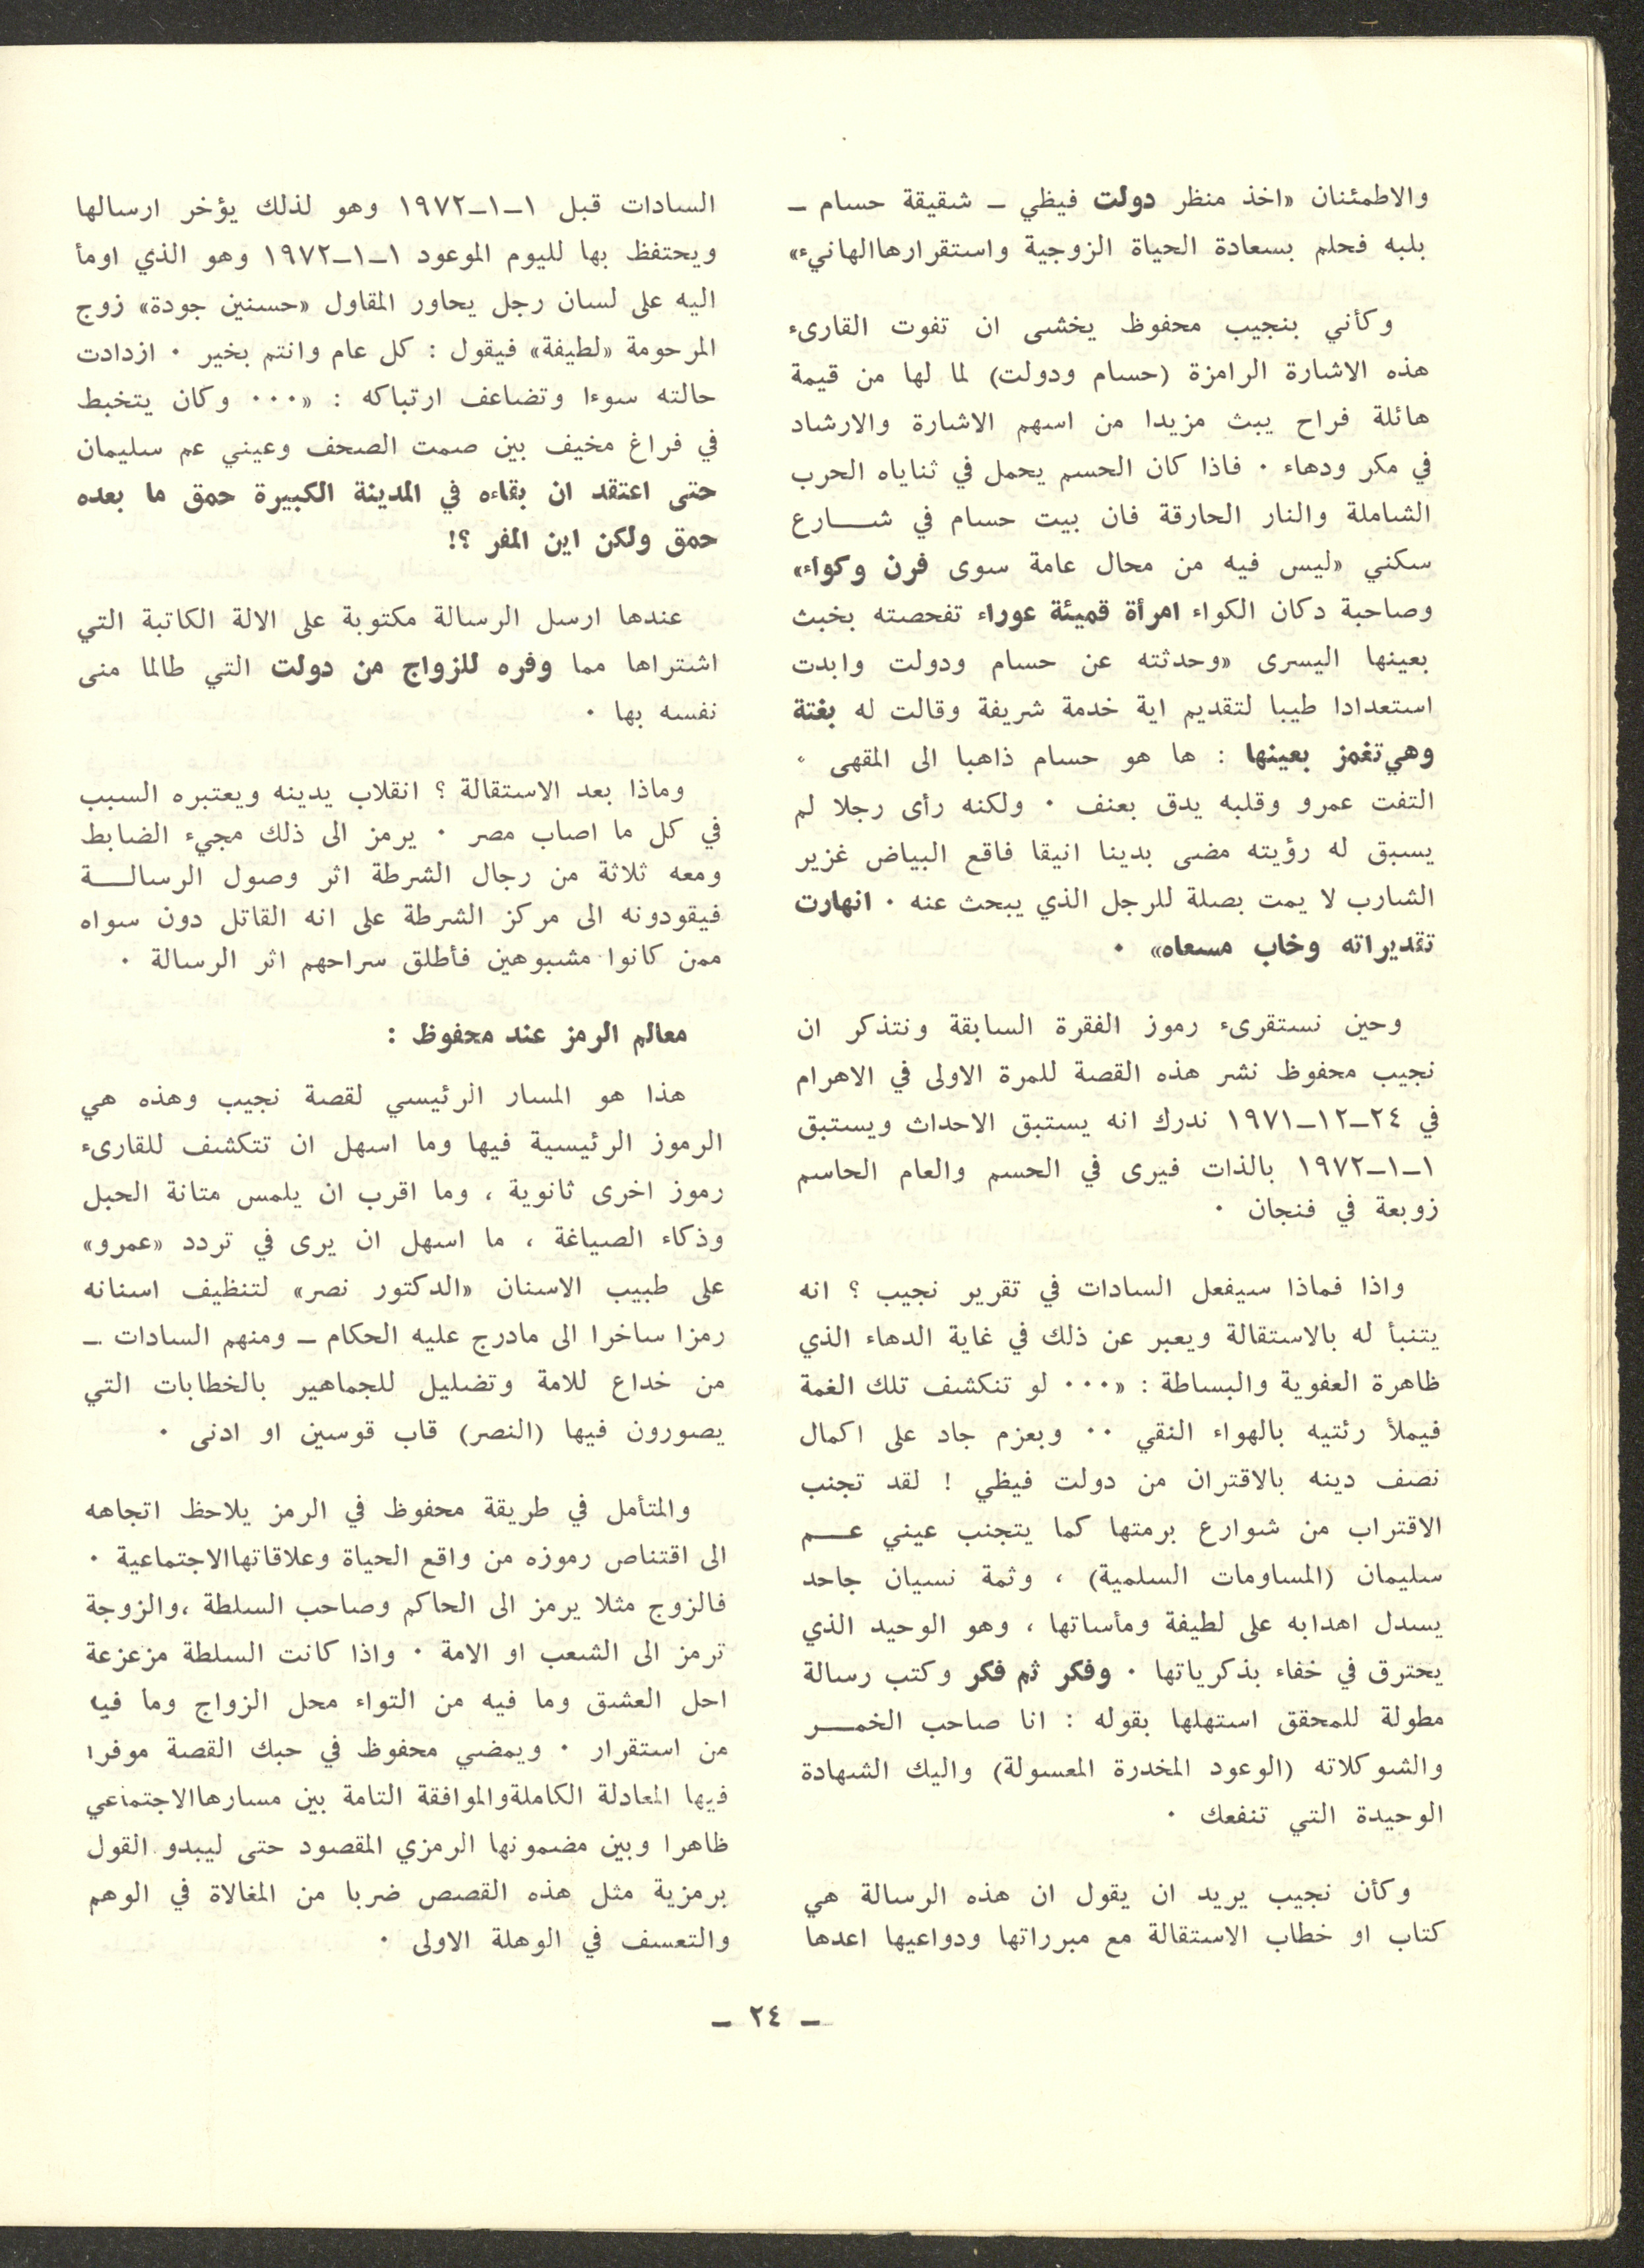 والاطمئنان «اخذ منظر دولت فيظي ــ شقيقة حسام ــ
بلبه فحلم بسعادة الحياة الزوجية واستقرارهاالهانيء»
وكأني بنجيب محفوظ يخشى ان تفوت القارىء
هذه الاشارة الرامزة (حسام ودولت) لما لها من قيمة
هائلة فراح يبث مزيدا من اسهم الاشارة والارشاد
في مكر ودهاء ٠ فاذا كان الحسم يحمل في ثناياه الحرب
الشاملة والنار الحارقة فان بيت حسام في شـــارع
سكني «ليس فيه من محال عامة سوى فرن وكواء»
وصاحبة دكان الكواء امرأة قميئة عوراء تفحصته بخبث
بعينها اليسرى «وحدثته عن حسام ودولت وابدت
استعدادا طيبا لتقديم اية خدمة شريفة وقالت له بغتة
وهي تغمز بعينها : ها هو حسام ذاهبا الى المقهى ٠
التفت عمرو وقلبه يدق بعنف ٠ ولكنه رأى رجلا لم
يسبق له رؤيته مضى بدينا انيقا فاقع البياض غزير
الشارب لا يمت بصلة للرجل الذي يبحث عنه ٠ انهارت
تقديراته وخاب مسعاه» ٠
وحين نستقرىء رموز الفقرة السابقة ونتذكر ان
نجيب محفوظ نشر هذه القصة للمرة الاولى في الاهرام
في ٢٤ــ١٢ــ١٩٧١ ندرك انه يستبق الاحداث ويستبق
١ــ١ــ١٩٧٢ بالذات فيرى في الحسم والعام الحاسم
زوبعة في فنجان ٠
واذا فماذا سيفعل السادات في تقرير نجيب ؟ انه
يتنبأ له بالاستقالة ويعبر عن ذلك في غاية الدهاء الذي
ظاهرة العفوية والبساطة : «٠٠٠ لو تنكشف تلك الغمة
فيملأ رئتيه بالهواء النقي ٠٠ وبعزم جاد على اكمال
نصف دينه بالاقتران من دولت فيظي ! لقد تجنب
الاقتراب من شوارع برمتها كما يتجنب عيني عـــم
سليمان (المساومات السلمية) ، وثمة نسيان جاحد
يسدل اهدابه على لطيفة ومأساتها ، وهو الوحيد الذي
يحترق في خفاء بذكرياتها ٠ وفكر ثم فكر وكتب رسالة
مطولة للمحقق استهلها بقوله : انا صاحب الخمـــر
والشوكلاته (الوعود المخدرة المعسولة) واليك الشهادة
الوحيدة التي تنفعك ٠
وكأن نجيب يريد ان يقول ان هذه الرسالة هي
كتاب او خطاب الاستقالة مع مبرراتها ودواعيها اعدها
السادات قبل ١ــ١ــ١٩٧٢ وهو لذلك يؤخر ارسالها
ويحتفظ بها لليوم الموعود ١ــ١ــ١٩٧٢ وهو الذي اومأ
اليه على لسان رجل يحاور المقاول «حسنين جودة» زوج
المرحومة «لطيفة» فيقول : كل عام وانتم بخير ٠ ازدادت
حالته سوءا وتضاعف ارتباكه : «٠٠٠ وكان يتخبط
في فراغ مخيف بين صمت الصحف وعيني عم سليمان
حتى اعتقد ان بقاءه في المدينة الكبيرة حمق ما بعده
حمق ولكن اين المفر ؟!
عندها ارسل الرسالة مكتوبة على الالة الكاتبة التي
اشتراها مما وفره للزواج من دولت التي طالما منى
نفسه بها ٠
وماذا بعد الاستقالة ؟ انقلاب يدينه ويعتبره السبب
في كل ما اصاب مصر ٠ يرمز الى ذلك مجيء الضابط
ومعه ثلاثة من رجال الشرطة اثر وصول الرسالـــة
فيقودونه الى مركز الشرطة على انه القاتل دون سواه
ممن كانوا مشبوهين فأطلق سراحهم اثر الرسالة ٠
معالم الرمز عند محفوظ :
هذا هو المسار الرئيسي لقصة نجيب وهذه هي
الرموز الرئيسية فيها وما اسهل ان تتكشف للقارىء
رموز اخرى ثانوية ، وما اقرب ان يلمس متانة الحبل
وذكاء الصياغة ، ما اسهل ان يرى في تردد «عمرو»
على طبيب الاسنان «الدكتور نصر» لتنظيف اسنانه
رمزا ساخرا الى مادرج عليه الحكام ــ ومنهم السادات ــ
من خداع للامة وتضليل للجماهير بالخطابات التي
يصورون فيها (النصر) قاب قوسين او ادنى ٠
والمتأمل في طريقة محفوظ في الرمز يلاحظ اتجاهه
الى اقتناص رموزه من واقع الحياة وعلاقاتهاالاجتماعية ٠
فالزوج مثلا يرمز الى الحاكم وصاحب السلطة ،والزوجة
ترمز الى الشعب او الامة ٠ واذا كانت السلطة مزعزعة
احل العشق وما فيه من التواء محل الزواج وما فيه
من استقرار ٠ ويمضي محفوظ في حبك القصة موفرا
فيها المعادلة الكاملةوالموافقة التامة بين مسارهاالاجتماعي
ظاهرا وبين مضمونها الرمزي المقصود حتى ليبدو القول
برمزية مثل هذه القصص ضربا من المغالاة في الوهم
والتعسف في الوهلة الاولى ٠
ــ ٢٤ ــ